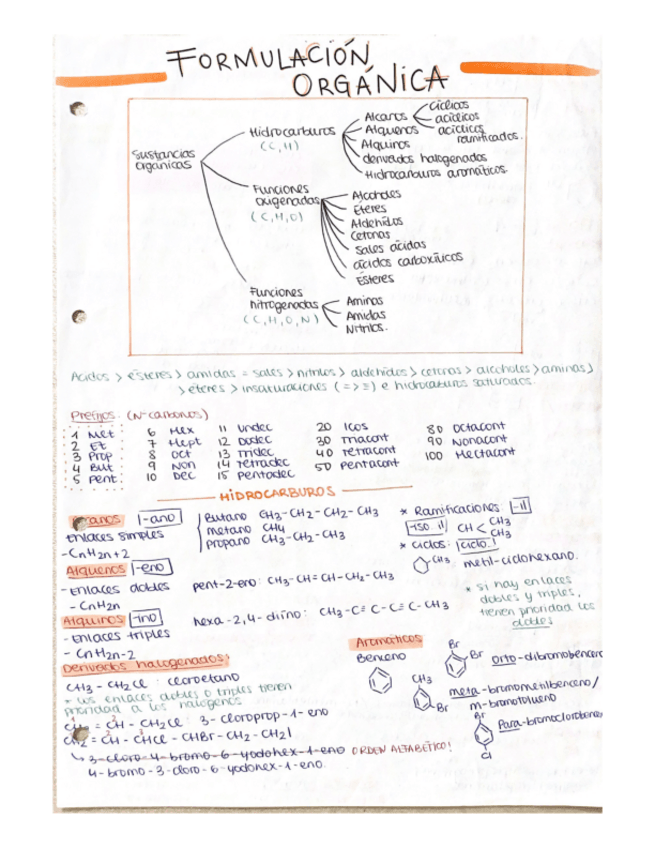 FORMULACIÓN ORGÁNICA
Sustancias orgánicas
Hidrocarburos
(C, H)
Alcanos
Alquenos
Alquinos
derivados halogenados
Hidrocarburos aromáticos.
cíclicos
acíclicos
acíclicos ramificados.
Funciones oxigenadas
(C, H, O)
Alcoholes
Éteres
Aldehídos
Cetonas
Sales ácidas
ácidos carboxílicos
Ésteres
Funciones nitrogenadas
(C, H, O, N)
Aminas
Amidas
Nitrilos.
Ácidos > ésteres > amidas = sales > nitrilos > aldehídos > cetonas > alcoholes > aminas >
> éteres > insaturaciones ( = > ≡ ) e hidrocarburos saturados.
Prefijos: (Nº carbonos)
1 Met 6 Hex 11 Undec 20 Icos 80 Octacont
2 Et 7 Hept 12 Dodec 30 Triacont 90 Nonacont
3 Prop 8 Oct 13 Tridec 40 Tetracont 100 Hectacont
4 But 9 Non 14 Tetradec 50 Pentacont
5 Pent 10 Dec 15 Pentadec
HIDROCARBUROS
-ano
enlaces simples
- CnH2n+2
Butano CH3-CH2-CH2-CH3
metano CH4
propano CH3-CH2-CH3
* Ramificaciones: -il
-iso il CH < CH3 CH3
* ciclos: ciclo.
CH3 metil-ciclohexano.
Alquenos -eno
- Enlaces dobles
- CnH2n
pent-2-eno: CH3-CH=CH-CH2-CH3
* si hay enlaces dobles y triples, tienen prioridad los dobles
Alquinos -ino
- Enlaces triples
- CnH2n-2
hexa-2,4-diíno: CH3-C≡C-C≡C-CH3
Derivados halogenados:
CH3-CH2Cl : cloroetano
* Los enlaces dobles o triples tienen prioridad a los halógenos
= CH - CH2Cl : 3-cloroprop-1-eno
CH2 = CH - CHCl - CHBr - CH2 - CH2I
3-cloro-4-bromo-6-yodohex-1-eno ORDEN ALFABÉTICO!
4-bromo-3-cloro-6-yodohex-1-eno.
Aromáticos
Benceno
Br
Br orto-dibromobencen
CH3
Br meta-bromometilbenceno/
m-bromotolueno
Br
Cl
Para-bromoclorobenceno